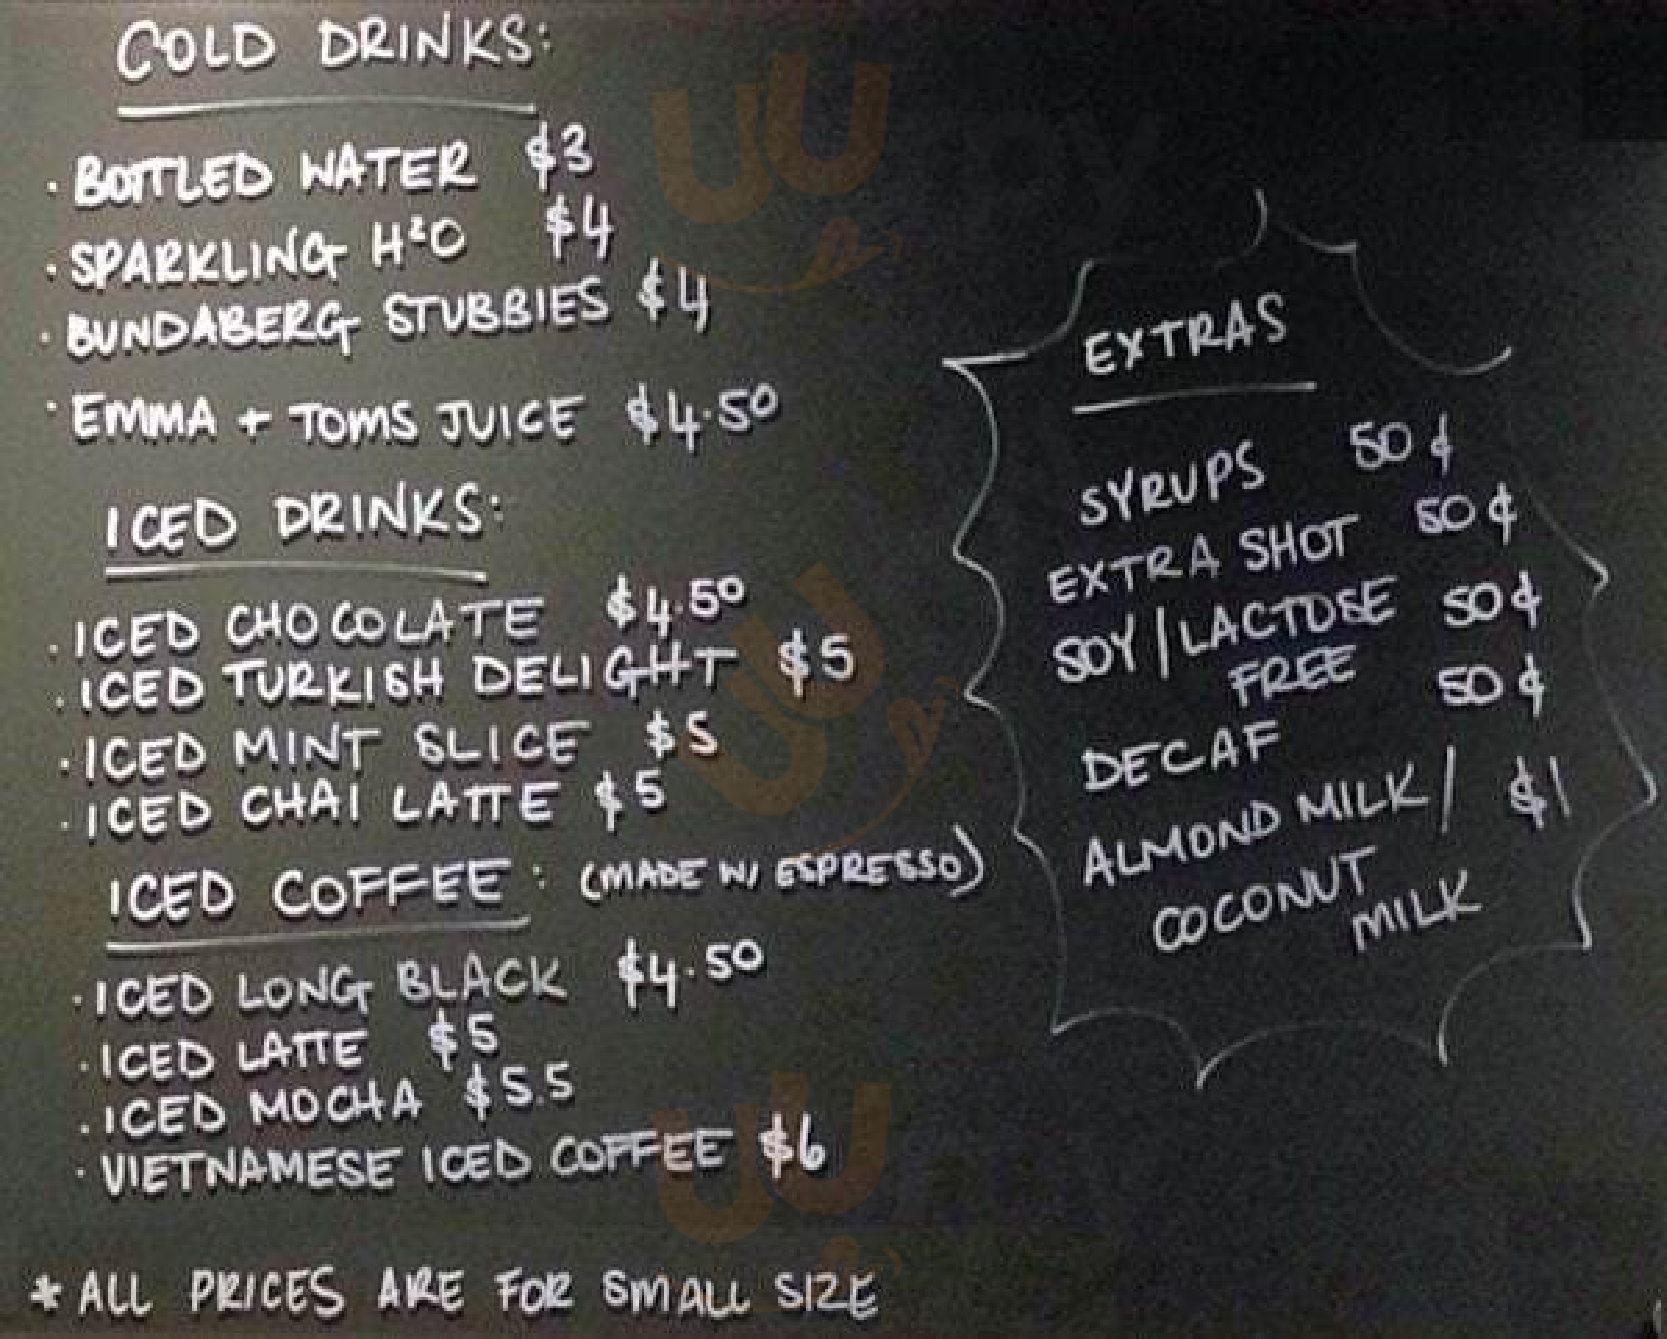 COLD DRINKS:
· BOTTLED WATER $3
· SPARKLING H²O $4
· BUNDABERG STUBBIES $4
· EMMA + TOMS JUICE $4.50
ICED DRINKS:
· ICED CHOCOLATE $4.50
· ICED TURKISH DELIGHT $5
· ICED MINT SLICE $5
· ICED CHAI LATTE $5
ICED COFFEE: (MADE W/ ESPRESSO)
· ICED LONG BLACK $4.50
· ICED LATTE $5
· ICED MOCHA $5.5
· VIETNAMESE ICED COFFEE $6
* ALL PRICES ARE FOR SMALL SIZE
EXTRAS
SYRUPS 50¢
EXTRA SHOT 50¢
SOY/LACTOSE 50¢
FREE
DECAF 50¢
ALMOND MILK/ $1
COCONUT
MILK